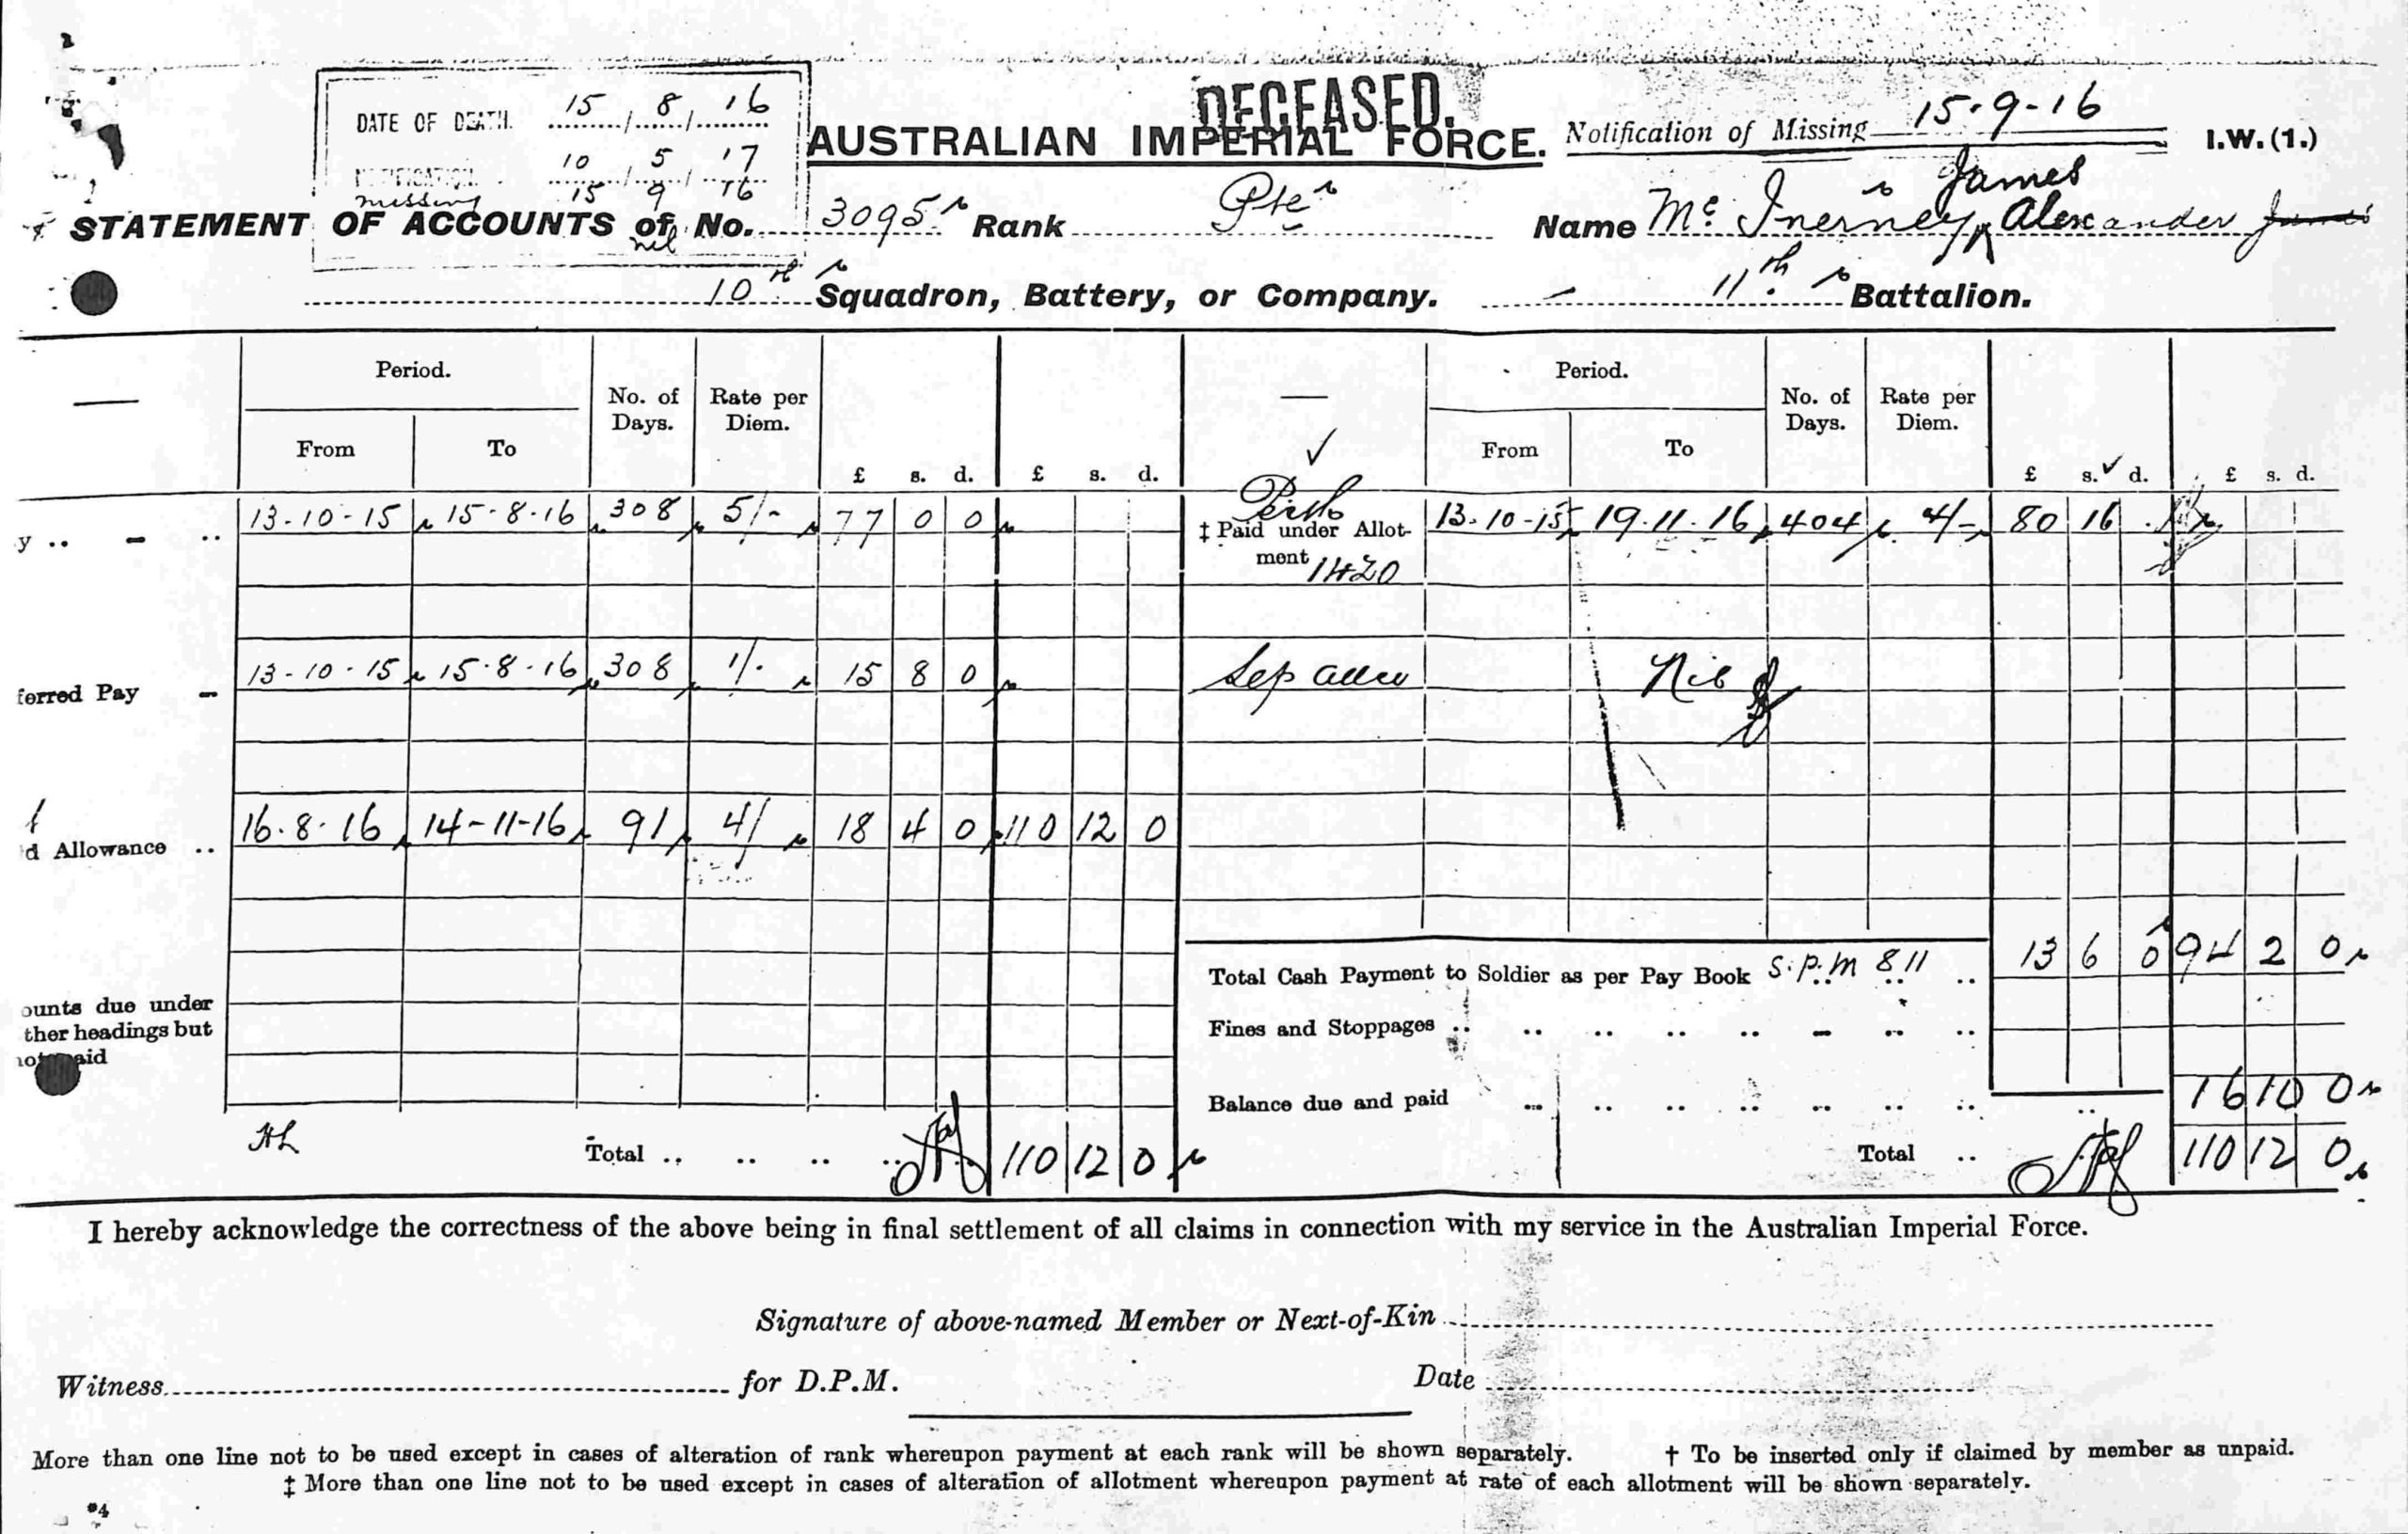 DECEASED.
DATE OF DEATH. 15 / 8 / 16
NOTIFICATION. 10 / 5 / 17
missing 15 / 9 / 16
nil
AUSTRALIAN IMPERIAL FORCE.
Notification of Missing 15-9-16
I.W.(1.)
STATEMENT OF ACCOUNTS of No. 3095 Rank Pte Name McInerney James Alexander James
10th Squadron, Battery, or Company. 11th Battalion.
Period. No. of Days. Rate per Diem. Period. No. of Days. Rate per Diem.
From To £ s. d. £ s. d. From To £ s. d. £ s. d.
y .. 13-10-15 15-8-16 308 5/- 77 0 0 Perth ‡ Paid under Allotment 1420 13-10-15 19.11.16 404 4/- 80 16
ferred Pay 13-10-15 15-8-16 308 1/- 15 8 0 Sep allce Nil
d Allowance .. 16.8.16 14-11-16 91 4/ 18 4 0 110 12 0
Total Cash Payment to Soldier as per Pay Book S.P.M 811 .. 13 6 0 94 2 0
ounts due under
ther headings but
not paid
Fines and Stoppages ..
Balance due and paid 16 10 0
HL Total .. 110 12 0 Total .. 110 12 0
I hereby acknowledge the correctness of the above being in final settlement of all claims in connection with my service in the Australian Imperial Force.
Signature of above-named Member or Next-of-Kin
Witness for D.P.M. Date
More than one line not to be used except in cases of alteration of rank whereupon payment at each rank will be shown separately. † To be inserted only if claimed by member as unpaid.
‡ More than one line not to be used except in cases of alteration of allotment whereupon payment at rate of each allotment will be shown separately.